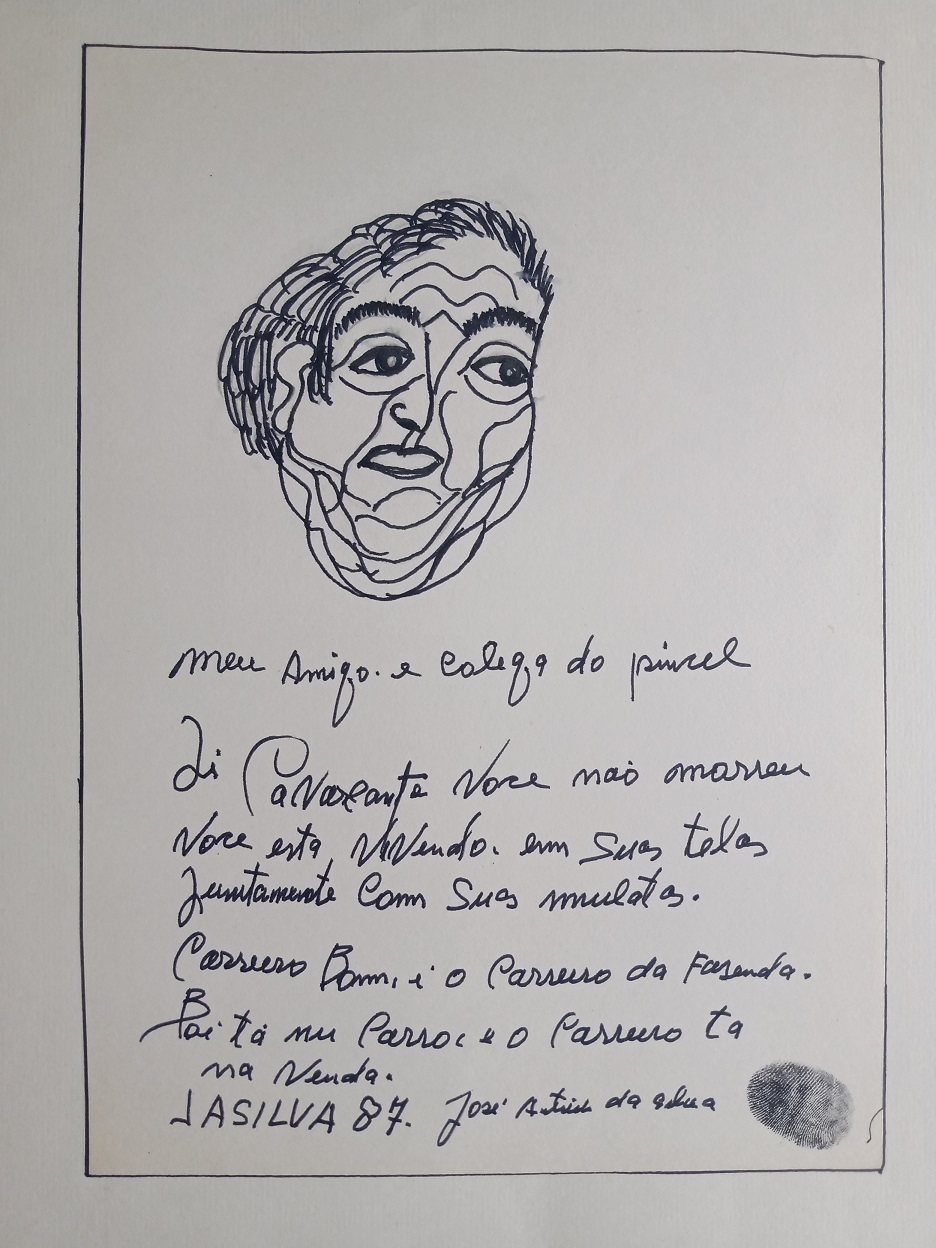 meu Amigo. e colega do pincel
Di Cavalcante Voce não morreu
Voce esta ViVendo. em Suas telas
Juntamente Com Suas mulatas.
Carreiro Bom, i o Carreiro da Fazenda.
Boi tá nu Carro, e o Carreiro ta
na Venda.
JASILVA 87. José Antonio da Silva